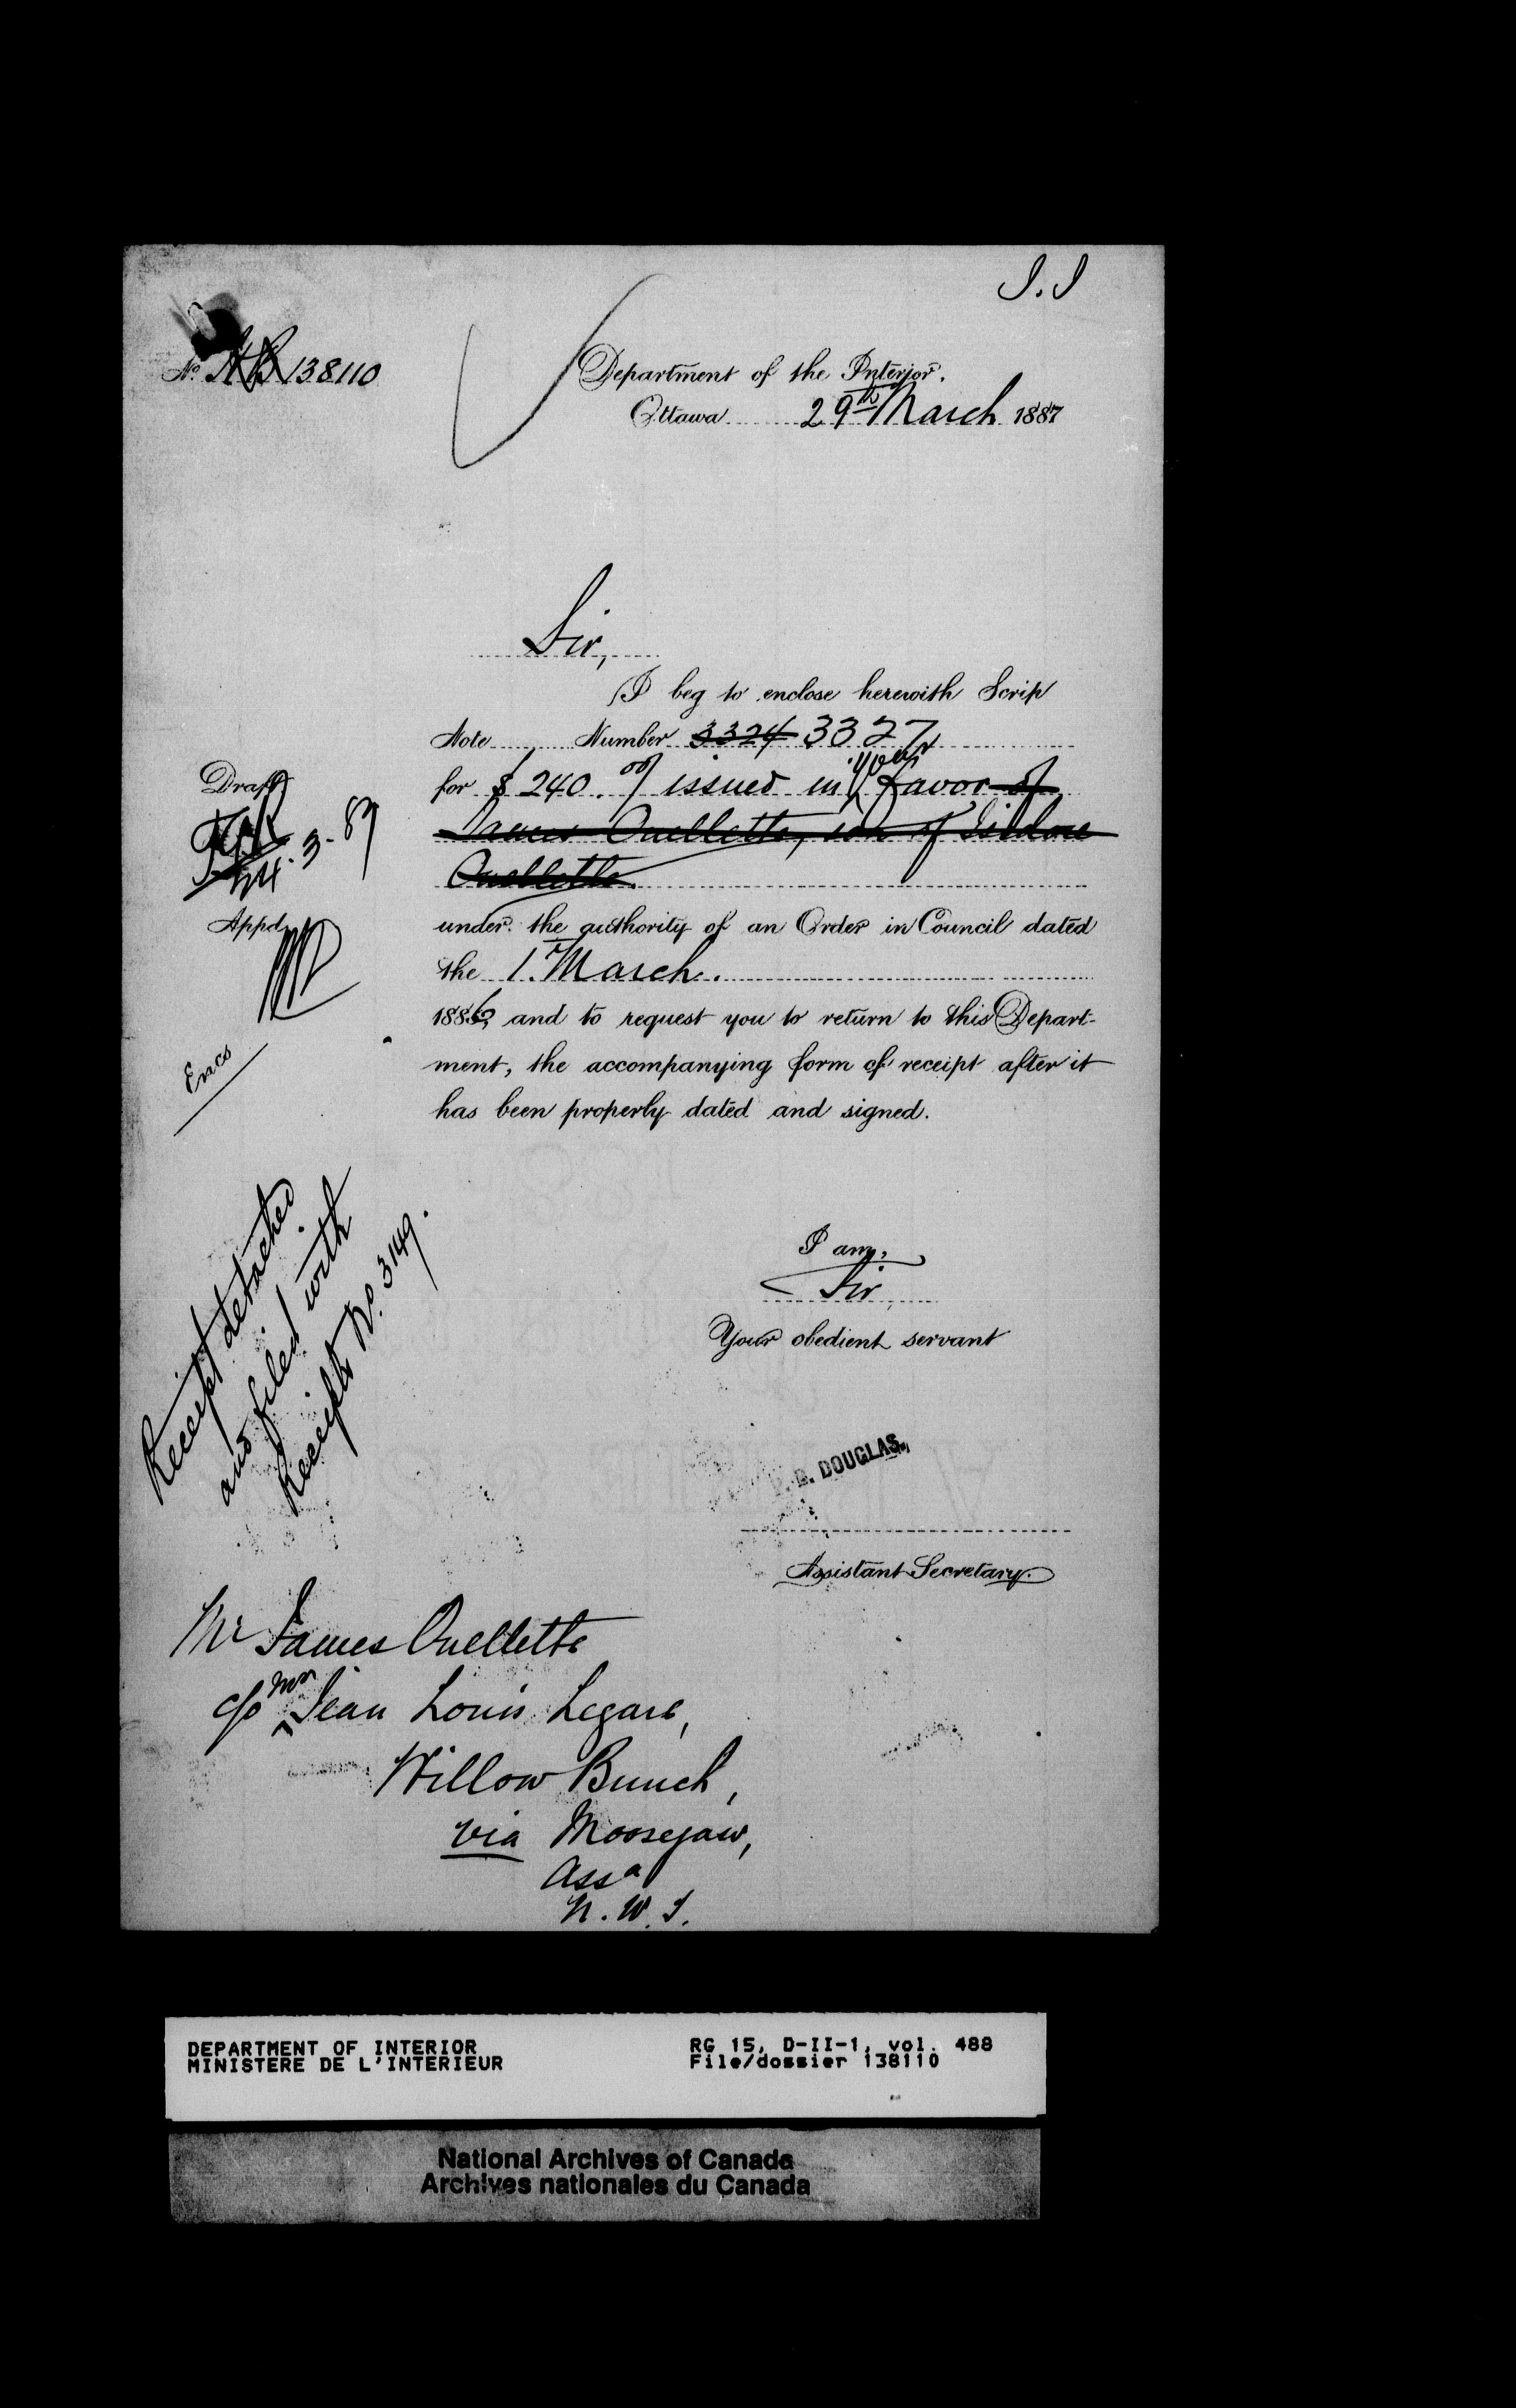 J.J
No. HB 138110
Department of the Interior.
Ottawa 29th March 1887
Sir,
I beg to enclose herewith Scrip
Note Number 3324 3327
your
for $240.00/ issued in favor of
James Ouellette, son of Isidore
Ouellette.
under the authority of an Order in Council dated
the 1st March.
1886, and to request you to return to this Depart-
ment, the accompanying form of receipt after it
has been properly dated and signed.
Draft
24.3.87
Appd
Encs
Receipt detached
and filed with
Receipt No. 3149.
I am,
Sir,
Your obedient servant
P. B. DOUGLAS.,
Assistant Secretary.
Mr James Ouellette
c/o Mr Jean Louis Legaré,
Willow Bunch,
via Moosejaw,
Assa
N.W.T.
DEPARTMENT OF INTERIOR
MINISTERE DE L'INTERIEUR
RG 15, D-II-1, vol. 488
File/dossier 138110
National Archives of Canada
Archives nationales du Canada